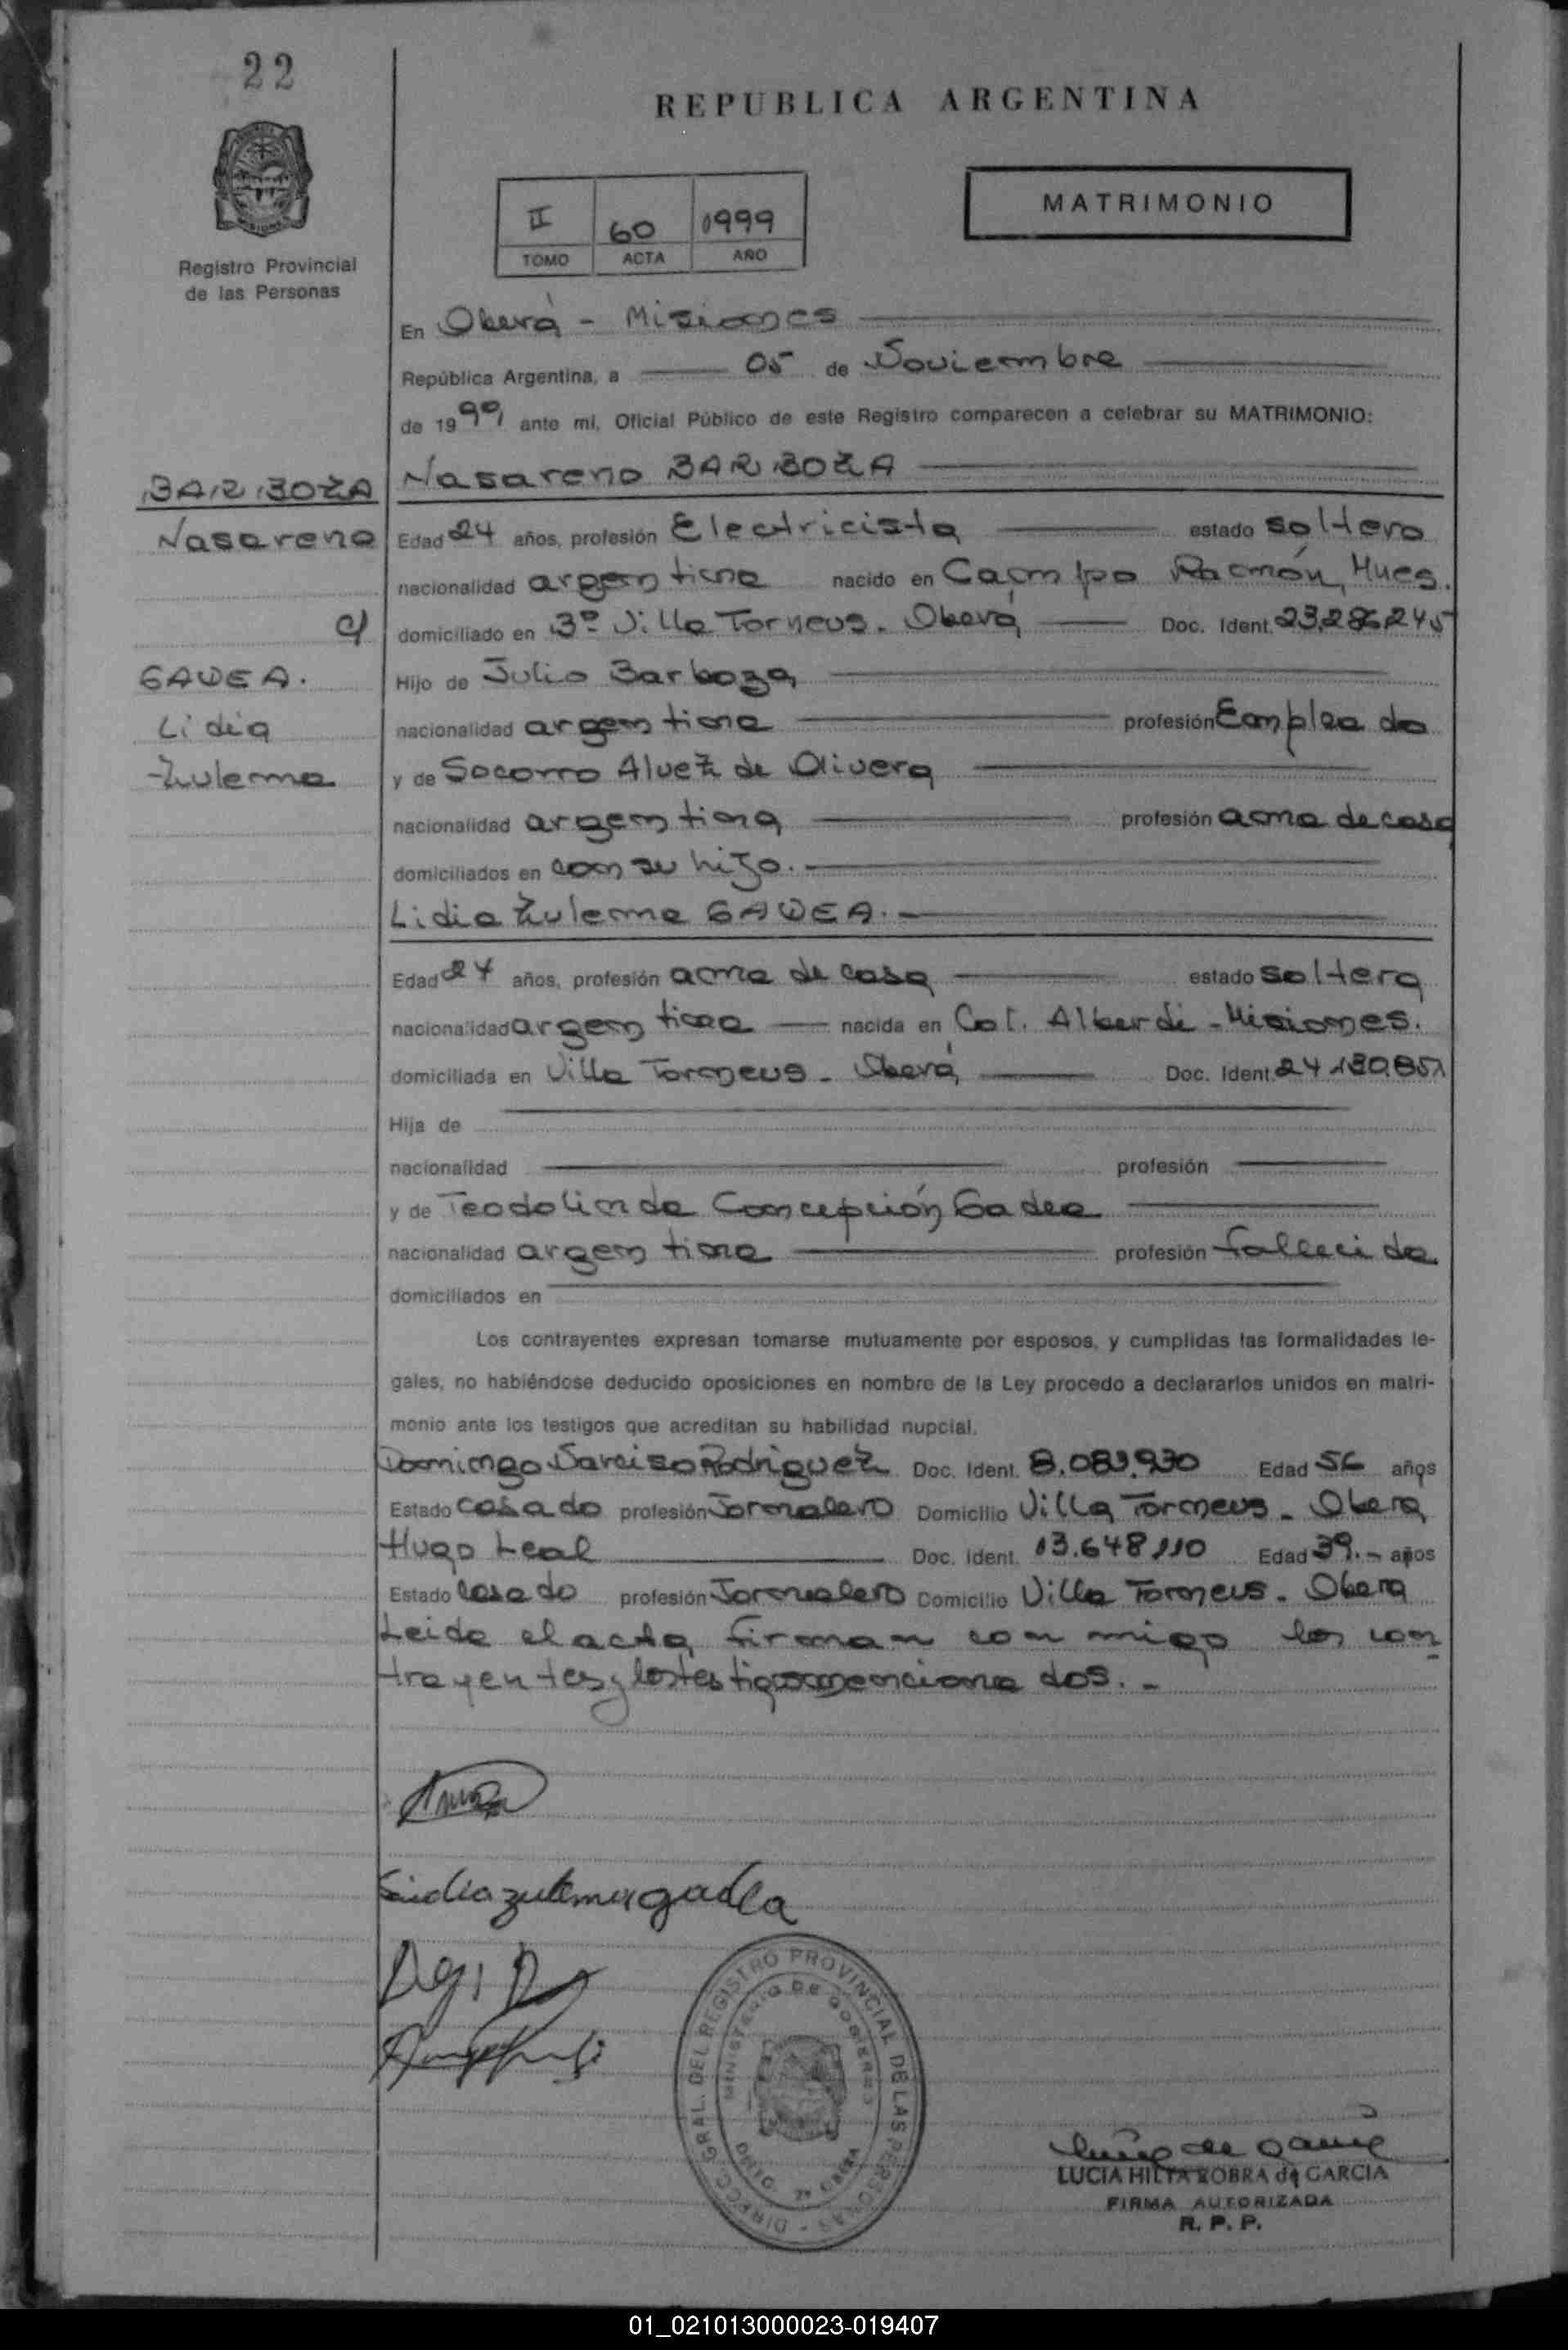 22
REPUBLICA ARGENTINA
II 60 1999
TOMO ACTA AÑO
MATRIMONIO
Registro Provincial
de las Personas
En Oberá - Misiones
República Argentina, a 05 de Noviembre
de 1999 ante mi, Oficial Público de este Registro comparecen a celebrar su MATRIMONIO:
BARBOZA
Nasareno
c/
GADEA.
Lidia
Zulema
Nasareno BARBOZA
Edad 24 años, profesión Electricista estado soltero
nacionalidad argentina nacido en Campo Ramón, Mnes.
domiciliado en 3º Villa Torneus. Oberá Doc. Ident. 23.286.245
Hijo de Julio Barboza
nacionalidad argentina profesión Empleado
y de Socorro Alvez de Olivera
nacionalidad argentina profesión ama de casa
domiciliados en con su hijo.
Lidia Zulema GADEA.
Edad 24 años, profesión ama de casa estado soltera
nacionalidad argentina nacida en Col. Alberdi - Misiones.
domiciliada en Villa Torneus - Oberá Doc. Ident. 24.130.851
Hija de
nacionalidad profesión
y de Teodolinda Concepción Gadea
nacionalidad argentina profesión fallecida
domiciliados en
Los contrayentes expresan tomarse mutuamente por esposos, y cumplidas las formalidades le-
gales, no habiéndose deducido oposiciones en nombre de la Ley procedo a declararlos unidos en matri-
monio ante los testigos que acreditan su habilidad nupcial.
Domingo Narciso Rodriguez Doc. Ident. 8.083.930 Edad 56 años
Estado casado profesión Jornalero Domicilio Villa Torneus - Obera
Hugo Leal Doc. Ident. 13.648.110 Edad 39.- años
Estado casado profesión Jornalero Comicilio Villa Torneus - Obera
Leida el acta, firman con migo los con
trayentes y los testigos mencionados. -
Lidia zulema gadea
DIRECC. GRAL. DEL REGISTRO PROVINCIAL DE LAS PERSONAS -
MINISTERIO DE GOBIERNO
LUCIA HILDA ZOBRA de GARCIA
FIRMA AUTORIZADA
R. P. P.
01_021013000023-019407